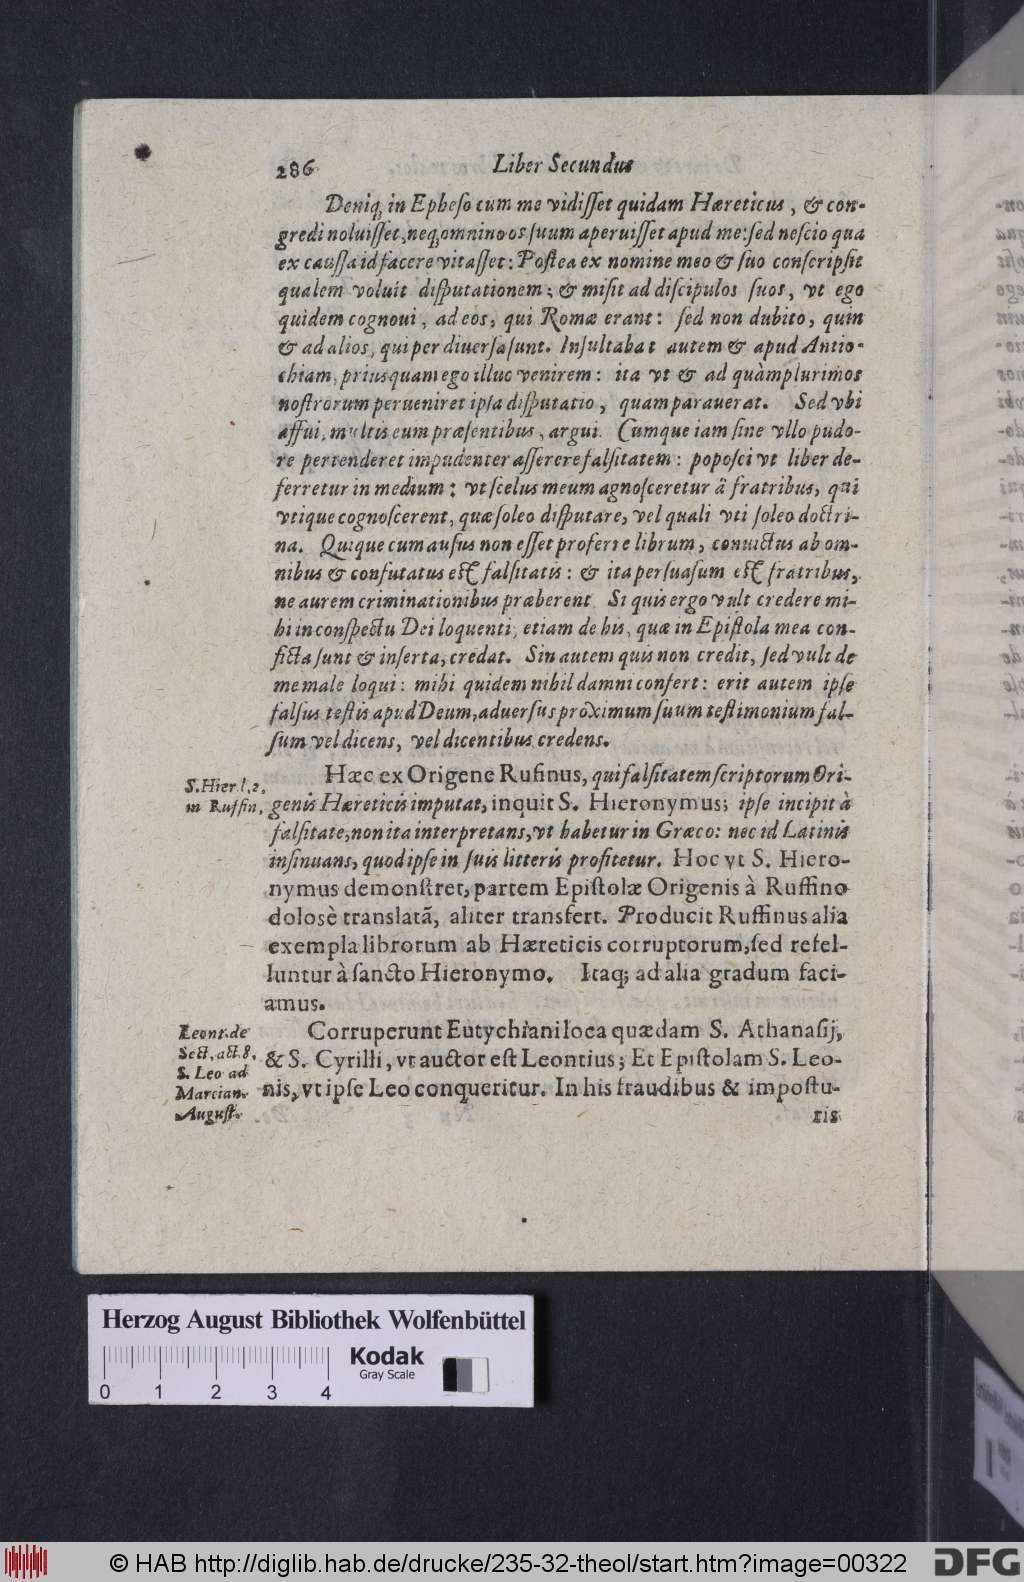 286 Liber Secundus
Deniq; in Epheso cum me vidisset quidam Hæreticus, & con-
gredi noluisset, neq; omnino os suum aperuisset apud me: sed nescio qua
ex caussa id facere vitasset: Postea ex nomine meo & suo conscripsit
qualem voluit disputationem; & misit ad discipulos suos, vt ego
quidem cognoui, ad eos, qui Romæ erant: sed non dubito, quin
& ad alios, qui per diuersa sunt. Insultabat autem & apud Antio-
chiam, priusquam ego illuc venirem: ita vt & ad quàmplurimos
nostrorum perueniret ipsa disputatio, quam parauerat. Sed vbi
affui, multis eum præsentibus, argui. Cumque iam sine vllo pudo-
re pertenderet impudenter asserere falsitatem: poposci vt liber de-
ferretur in medium: vt scelus meum agnosceretur à fratribus, qui
vtique cognoscerent, quæ soleo disputare, vel quali vti soleo doctri-
na. Quique cum ausus non esset proferre librum, conuictus ab om-
nibus & confutatus est falsitatis: & ita persuasum est fratribus,
ne aurem criminationibus præberent. Si quis ergo vult credere mi-
hi in conspectu Dei loquenti, etiam de his, quæ in Epistola mea con-
ficta sunt & inserta, credat. Sin autem quis non credit, sed vult de
me male loqui: mihi quidem nihil damni confert: erit autem ipse
falsus testis apud Deum, aduersus proximum suum testimonium fal-
sum vel dicens, vel dicentibus credens.
Hæc ex Origene Rufinus, qui falsitatem scriptorum Ori-
S. Hier. l. 2.
in Ruffin.
genis Hæreticis imputat, inquit S. Hieronymus; ipse incipit à
falsitate, non ita interpretans, vt habetur in Græco: nec id Latinis
insinuans, quod ipse in suis litteris profitetur. Hoc vt S. Hiero-
nymus demonstret, partem Epistolæ Origenis à Ruffino
dolosè translatã, aliter transfert. Producit Ruffinus alia
exempla librorum ab Hæreticis corruptorum, sed refel-
luntur à sancto Hieronymo. Itaq; ad alia gradum faci-
amus.
Corruperunt Eutychiani loca quædam S. Athanasij,
& S. Cyrilli, vt auctor est Leontius; Et Epistolam S. Leo-
nis, vt ipse Leo conqueritur. In his fraudibus & impostu-
Leont. de
Sect. act. 8.
S. Leo ad
Marcian.
August.
ris
Herzog August Bibliothek Wolfenbüttel
Kodak
Gray Scale
0 1 2 3 4
© HAB http://diglib.hab.de/drucke/235-32-theol/start.htm?image=00322
DFG